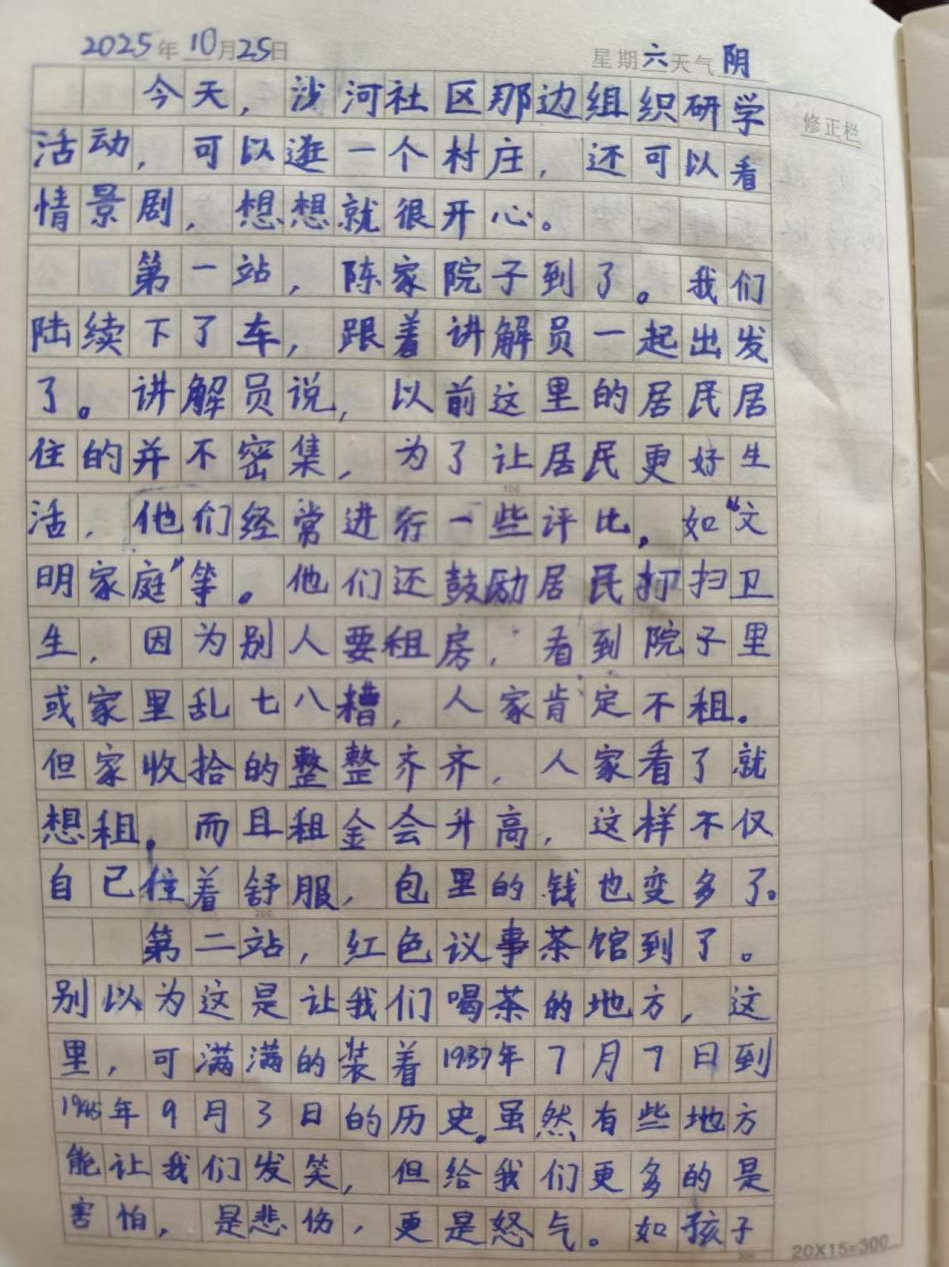 2025年10月25日 星期六天气阴
今天，沙河社区那边组织研学
修正栏
活动，可以逛一个村庄，还可以看
情景剧，想想就很开心。
第一站，陈家院子到了。我们
陆续下了车，跟着讲解员一起出发
了。讲解员说，以前这里的居民居
住的并不密集，为了让居民更好生
活，他们经常进行一些评比，如“文
明家庭”等。他们还鼓励居民打扫卫
生，因为别人要租房，看到院子里
或家里乱七八糟，人家肯定不租。
但家收拾的整整齐齐，人家看了就
想租，而且租金会升高，这样不仅
自己住着舒服，包里的钱也变多了。
第二站，红色议事茶馆到了。
别以为这是让我们喝茶的地方，这
里，可满满的装着1937年7月7日到
1945年9月3日的历史。虽然有些地方
能让我们发笑，但给我们更多的是
害怕，是悲伤，更是怒气。如孩子
20X15=300